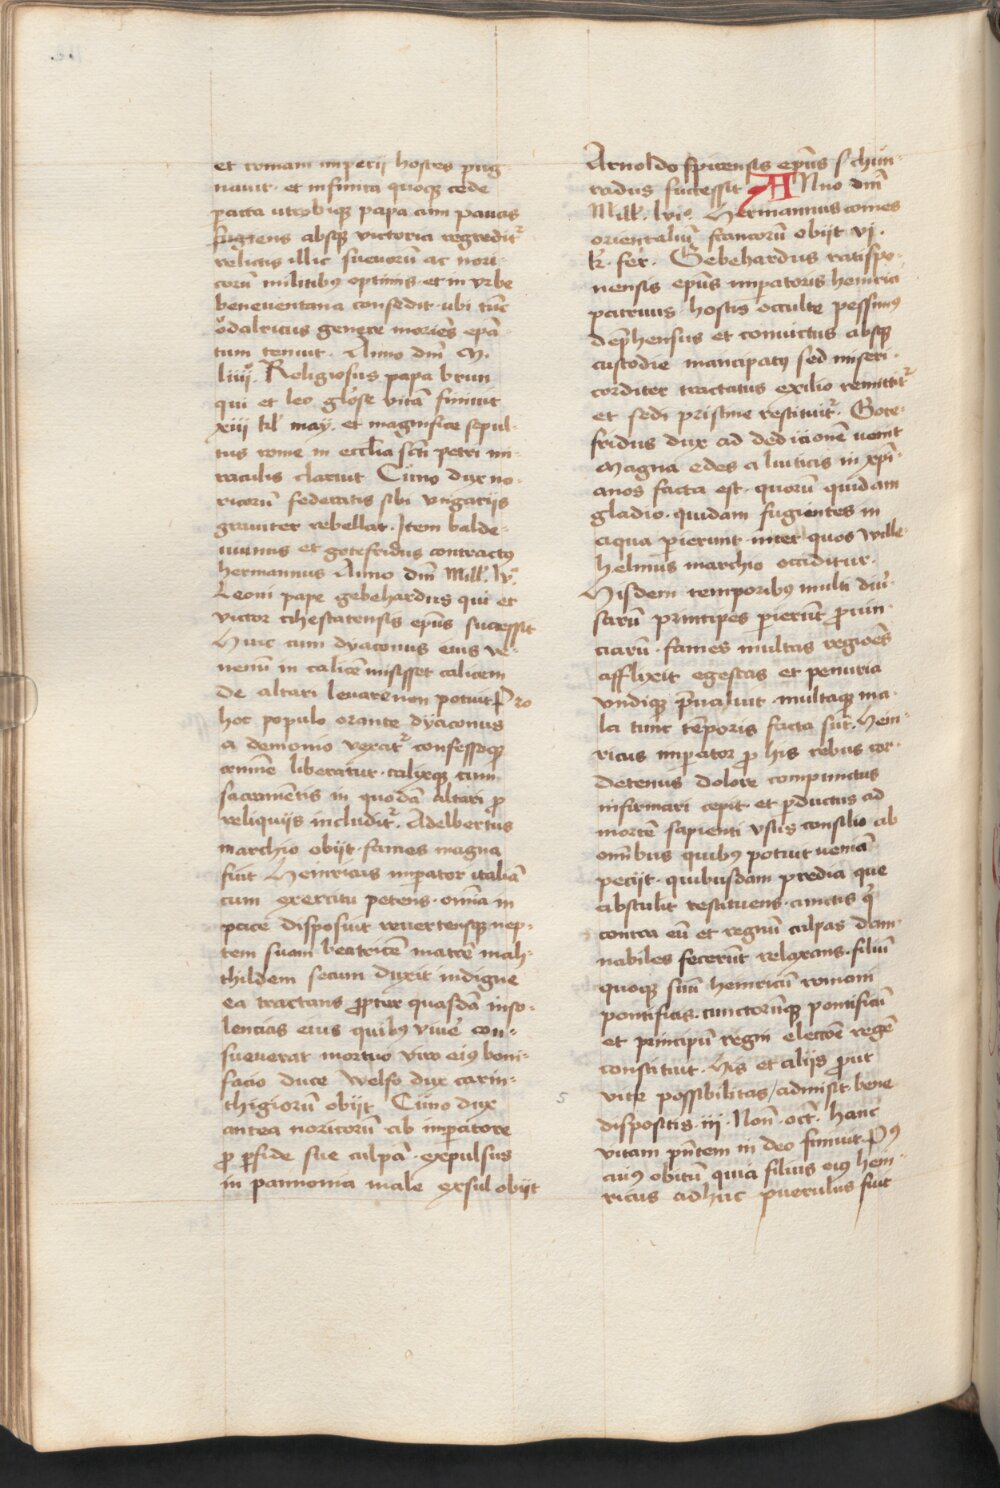 et romani imperij hostes pug
nauit · et infinita quoqꝫ cede
pacta utrobiqꝫ papa cum paucis
fugiens absqꝫ victoria regredit᷑
relictis illic sueuorū ac nori-
corū militibꝰ optimis et in vrbe
beneuentana consedit · ubi tūc
odalricus genere moriēs epā-
tum tenuit · Anno dn̄i M.
liiijº. Religiosus papa brun
qui et leo gl̓ose vitā finiuit
xiij kl̓ may. et magnifice sepul-
tus rome in eccl̓ia sc̄ti petri mi-
raculis claruit Cūno dux no-
ricorū federatis sibi vngariis
grauiter rebellat · Item balde-
uuinus et gotefridus contractꝰ
hermannus Anno dn̄i Mill̓. lvº
Leoni pape gebehardus qui et
victor eihestatensis ep̄us successit
Huic cum dyaconus eius ve-
nenū in calicē misisset calicem
de altari leuare non potuit Pro
hoc populo orante dyaconus
a demonio vexat᷑ confessoqꝫ
crimīe liberatur · calixqꝫ cum
sacramētis in quodā altari ꝓ
reliquijs includit᷑. Adelbertus
marchio obijt · fames magna
fuit Heinricus imperator italiā
cum exercitu petens · omīa in
pace disposuit reuertensqꝫ nep-
tem suam beatricē matrē mah-
thildem secum duxit indigne
ea tractans ꝓpter quasdā inso-
lencias eius quibꝰ viuēs con-
sueuerat mortuo viro eiꝰ boni-
facio duce Welfo dux carin-
thigiorū obijt Cūno dux
antea noricorū ab imperatore
ꝓ ꝑfide sue culpā · expulsus
in pannonia male exsul obijt
Arnoldo spirensis ep̄us s̓ chūn-
radus successit ANno dn̄i
Mill̓. lviº. Hermannus comes
orientaliū francorū obijt vj.
k̓. fēr. Gebehardus ratispo-
nensis ep̄us imperatoris heinrici
patruus · hostis occulte pessimꝰ
dep̄hensus et conuictus absqꝫ
custodie mancipatꝰ sed miseri-
corditer tractatus exilio remittit᷑
et sedi pristine restituit᷑. Gote-
fridus dux ad dedicionē uenit
Magna cedes a liuticis in xp̄i-
anos facta est · quorū quidam
gladio · quidam fugientes in
aqua perierunt · inter quos Wille-
helmus marchio occiditur ·
Hisdem temporibꝰ multi diu̓-
sarū principes perierūt ꝓuin-
ciarū · fames multas regiões
afflixit egestas et penuria
vndiqꝫ p̄ualuit · multaqꝫ ma-
la tunc tēporis facta sūt. Hein-
ricus imperator ꝓ his rebus cor-
detenus dolore compunctus
infirmari cepit · et ꝑductus ad
mortē sapienti vsus consilio ab
omībus quibꝰ potuit ueniā
peciit · quibusdam predia que
abstulit restituens · cunctis q̓
contra eū et regnū culpas dam-
nabiles fecerūt relaxans · filiū
quoqꝫ suū heinricū romani
pontificis · cunctorūqꝫ pontificū
et principū regni eleccōe regē
constituit · His et alijs prout
vite possibilitas admisit · bene
dispositis · iij · Non̄ · oct̄. hanc
vitam p̄ntem in deo finiuit · Pꝰ
cuiꝰ obitū quia filius eiꝰ hein-
ricus adhuc puerulus fuit